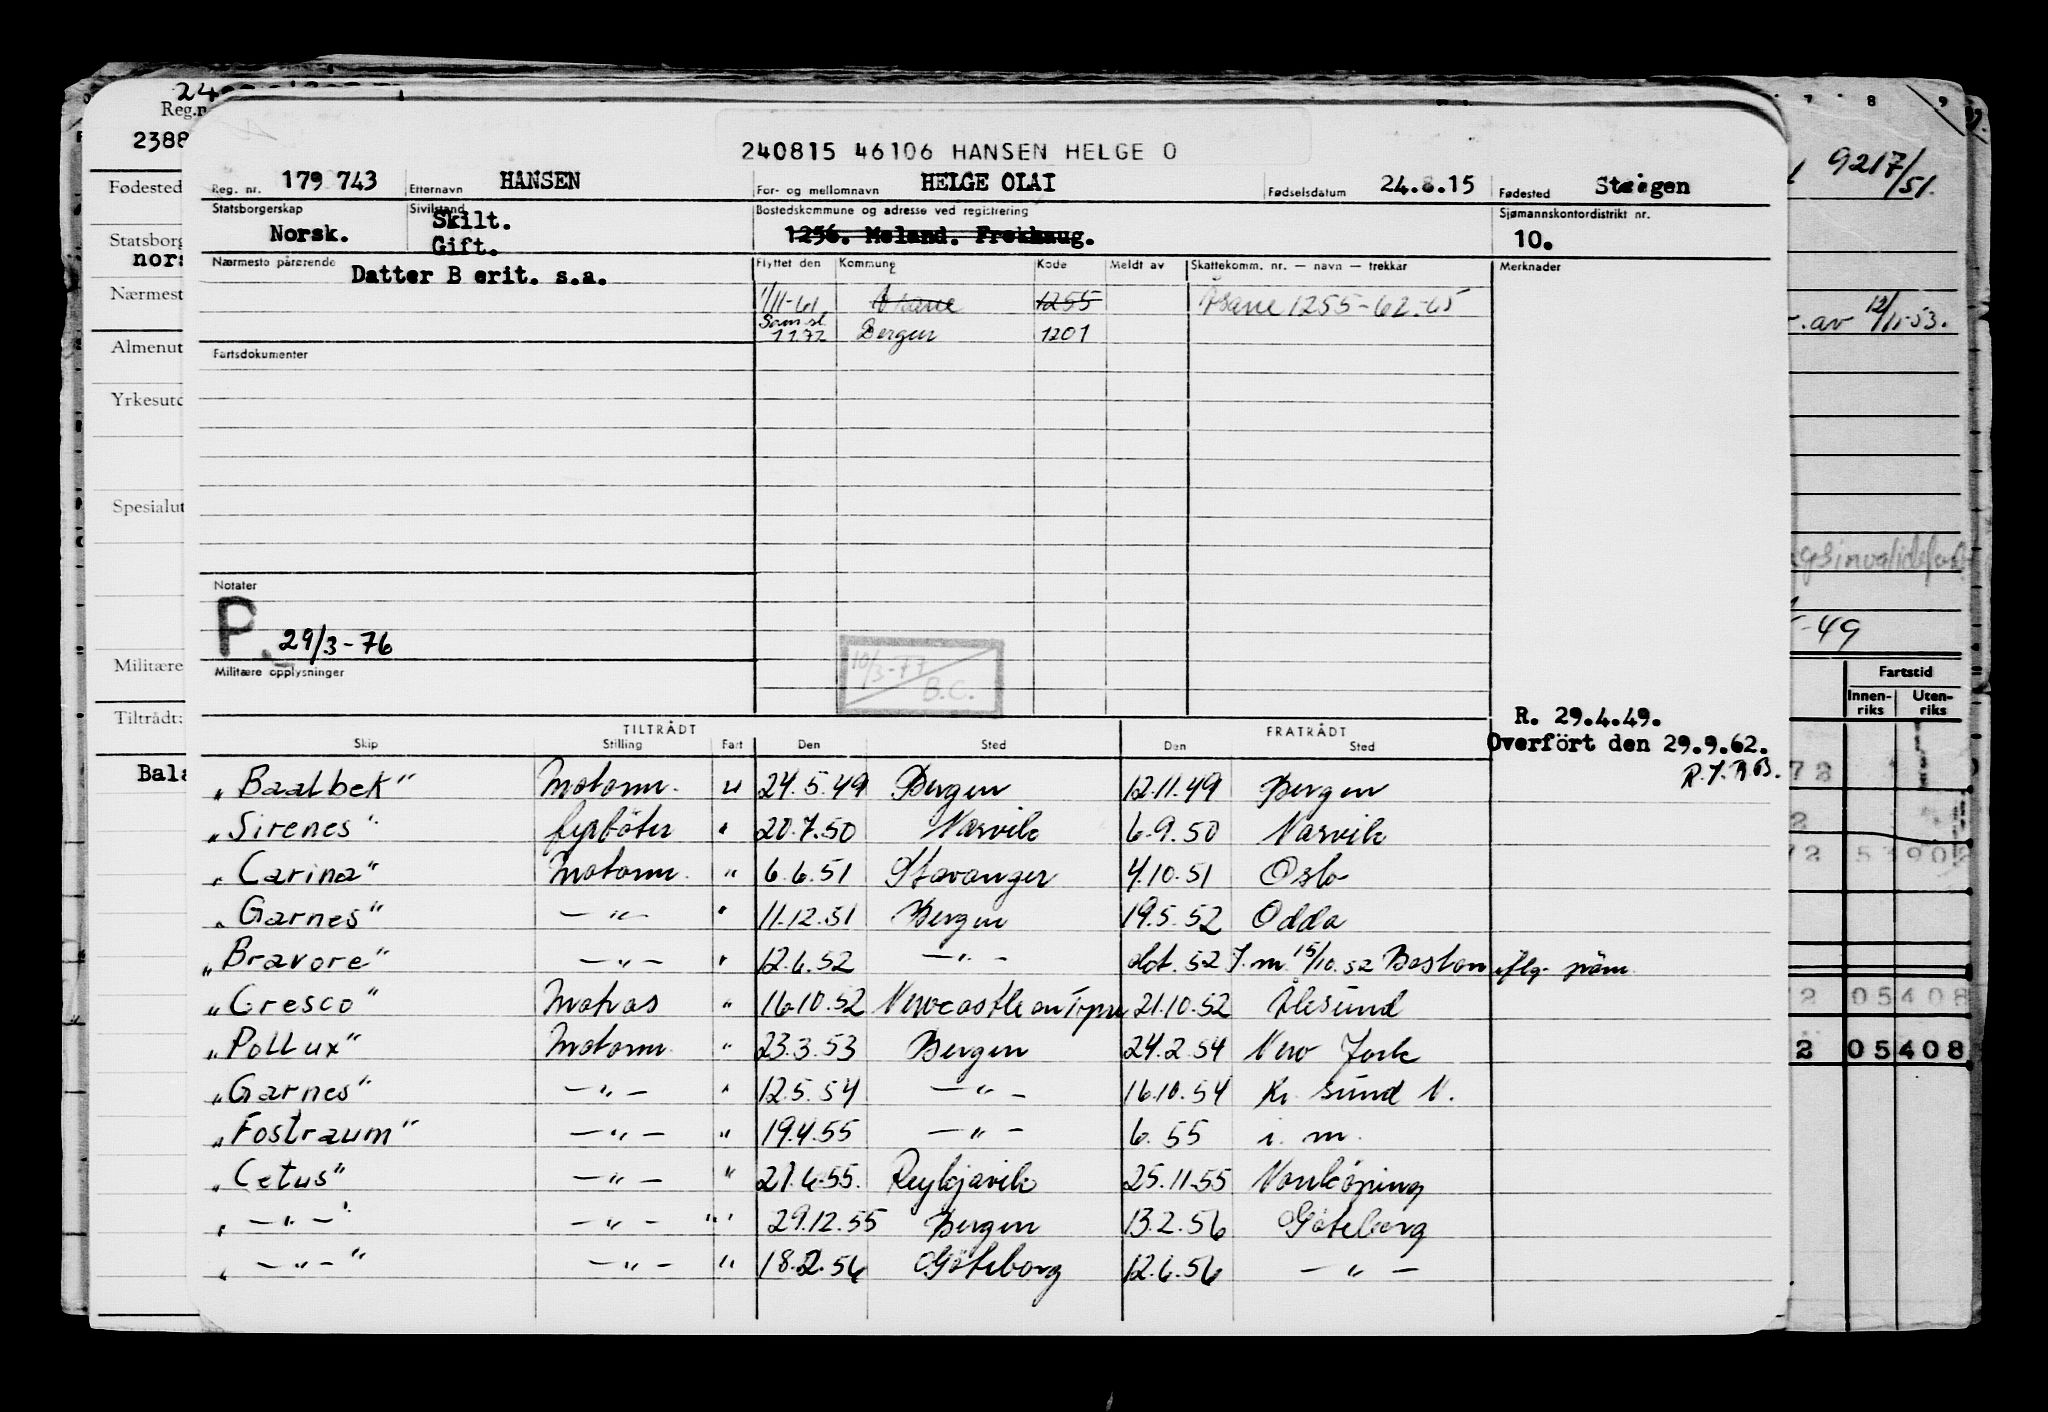 240815 46106 HANSEN HELGE O
Reg. nr. 179 743 Etternavn HANSEN For- og mellomnavn HELGE OLAI Fødselsdatum 24.8.15 Fødested Steigen
Statsborgerskap Norsk. Sivilstand Skilt. Gift. Bostedskommune og adresse ved registrering 1256. Meland. Frekhaug. Sjømannskontordistrikt nr. 10.
Nærmeste pårørende Datter B erit. s.a. Flyttet den Kommune Kode Meldt av Skattekomm. nr. — navn — trekkår Merknader
1/11-61 Åsane 1255 Åsane 1255-62-65
Sam.sl. 1.1.72 Bergen 1201
Fartsdokumenter
Notater
P. 29/3-76
10/3-77 B.C.
Militære opplysninger
R. 29.4.49.
Overfört den 29.9.62.
TILTRÅDT FRATRÅDT
Skip Stilling Fart Den Sted Den Sted
"Baalbek" Motorm. u 24.5.49 Bergen 12.11.49 Bergen
"Sirenes" fyrböter " 20.7.50 Narvik 6.9.50 Narvik
"Carina" Motorm. " 6.6.51 Stavanger 4.10.51 Oslo
"Garnes" — " — " 11.12.51 Bergen 19.5.52 Odda
"Bravore" — " — " 12.6.52 — " — Okt. 52 I.m. 15/10.52 Boston
"Cresco" Matros " 16.10.52 Newcastle on Tyne 21.10.52 Ålesund
"Pollux" Motorm. " 23.3.53 Bergen 24.2.54 New York
"Garnes" — " — " 12.5.54 — " — 16.10.54 Kr. sund N.
"Fostraum" — " — " 19.4.55 — " — 6.55 i. m.
"Cetus" — " — " 21.6.55. Reykjavik 25.11.55 Norrköping
" — " — " — " — " 29.12.55 Bergen 13.2.56 Göteborg
" — " — " — " — " 18.2.56 Göteborg 12.6.56 — " —
Reg.n
2388
Fødested
Statsborg
nors
Nærmest
Almenut
Yrkesutd
Spesialut
Militære
Tiltrådt:
Bala
7 8 9
9217/51.
r. av 12/11-53.
-49
Fartstid
Innen-riks Uten-riks
72
2
72 53902
12 05408
2 05408